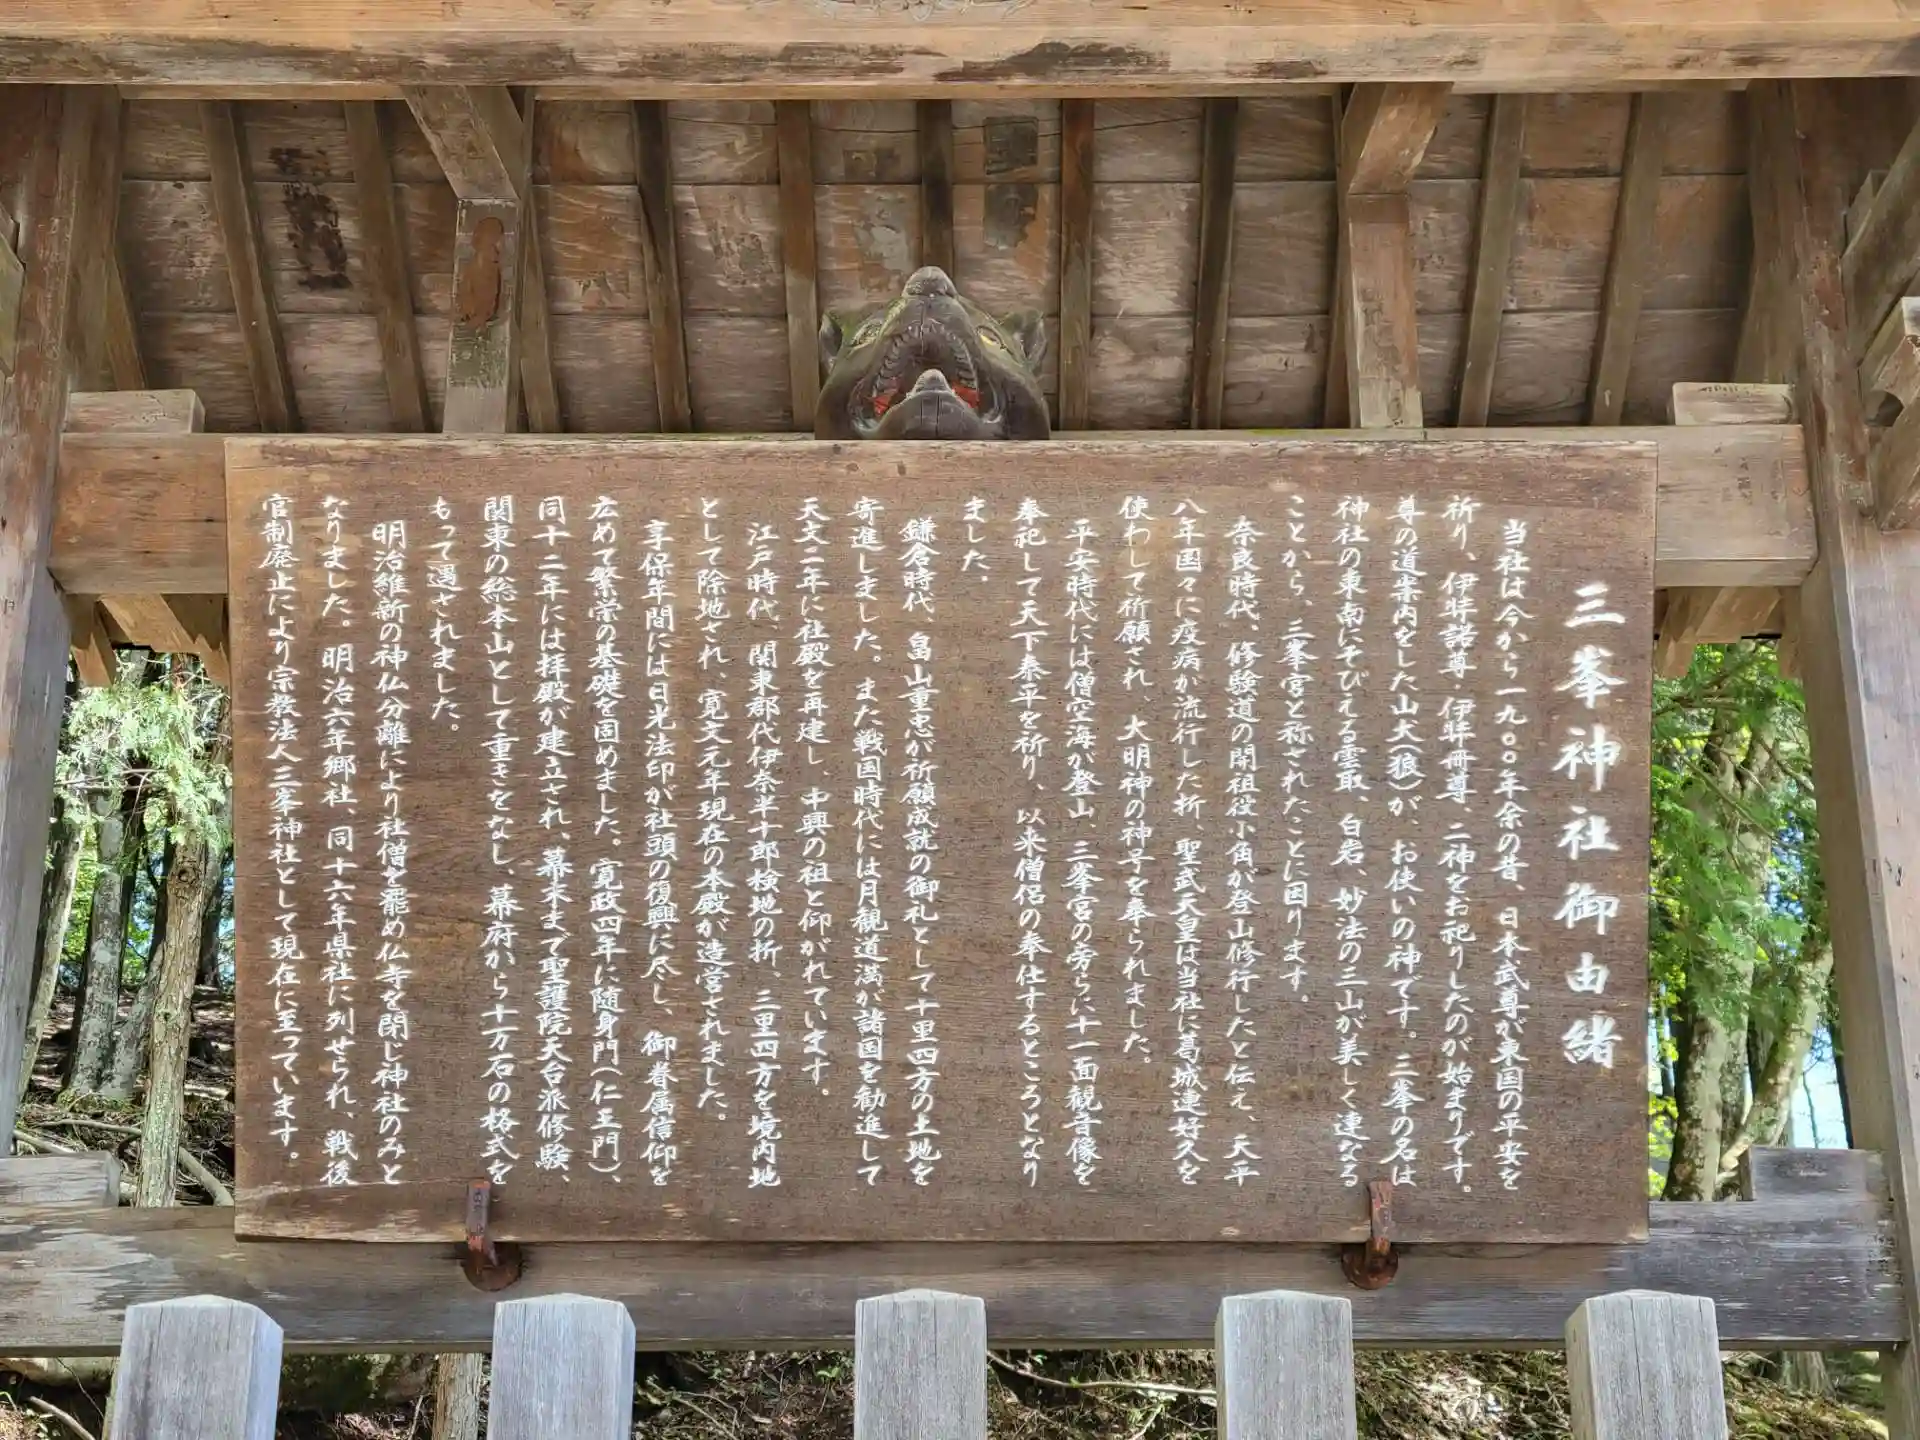 三峯神社御由緒
当社は今から一九〇〇年余の昔、日本武尊が東国の平安を
祈り、伊弉諾尊・伊弉册尊、二神をお祀りしたのが始まりです。
尊の道案内をした山犬(狼)が、お使いの神です。三峯の名は
神社の東南にそびえる雲取、白岩、妙法の三山が美しく連なる
ことから、三峯宮と称されたことに因ります。
奈良時代、修験道の開祖役小角が登山修行したと伝え、天平
八年国々に疫病が流行した折、聖武天皇は当社に葛城連好久を
使わして祈願され、大明神の神号を奉られました。
平安時代には僧空海が登山、三峯宮の旁らに十一面観音像を
奉祀して天下泰平を祈り、以来僧侶の奉仕するところとなり
ました。
鎌倉時代、畠山重忠が祈願成就の御礼として十里四方の土地を
寄進しました。また戦国時代には月観道満が諸国を勧進して
天文二年に社殿を再建し、中興の祖と仰がれています。
江戸時代、関東郡代伊奈半十郎検地の折、三里四方を境内地
として除地され、寛文元年現在の本殿が造営されました。
享保年間には日光法印が社頭の復興に尽し、御眷属信仰を
広めて繁栄の基礎を固めました。寛政四年に随身門(仁王門)、
同十二年には拝殿が建立され、幕末まで聖護院天台派修験、
関東の総本山として重きをなし、幕府から十万石の格式を
もって遇されました。
明治維新の神仏分離により社僧を罷め仏寺を閉じ神社のみと
なりました。明治六年郷社、同十六年県社に列せられ、戦後
官制廃止により宗教法人三峯神社として現在に至っています。